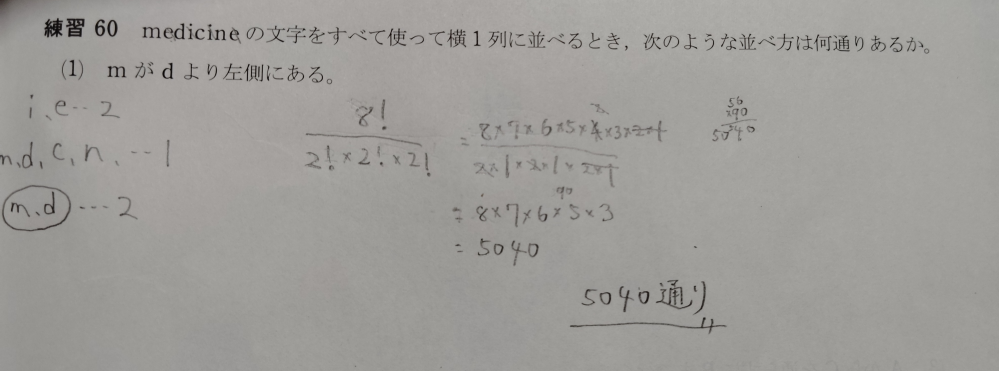 練習 60 medicine の文字をすべて使って横1列に並べるとき，次のような並べ方は何通りあるか。
(1) m が d より左側にある。
i、e … 2
m,d,c,n, … 1
m、d … 2
8!
2!×2!×2!
= 8×7×6×5×4×3×2×1
2×1×2×1×2×1
2
= 8×7×6×5×3
90
= 5040
5040通り
56
×90
5040